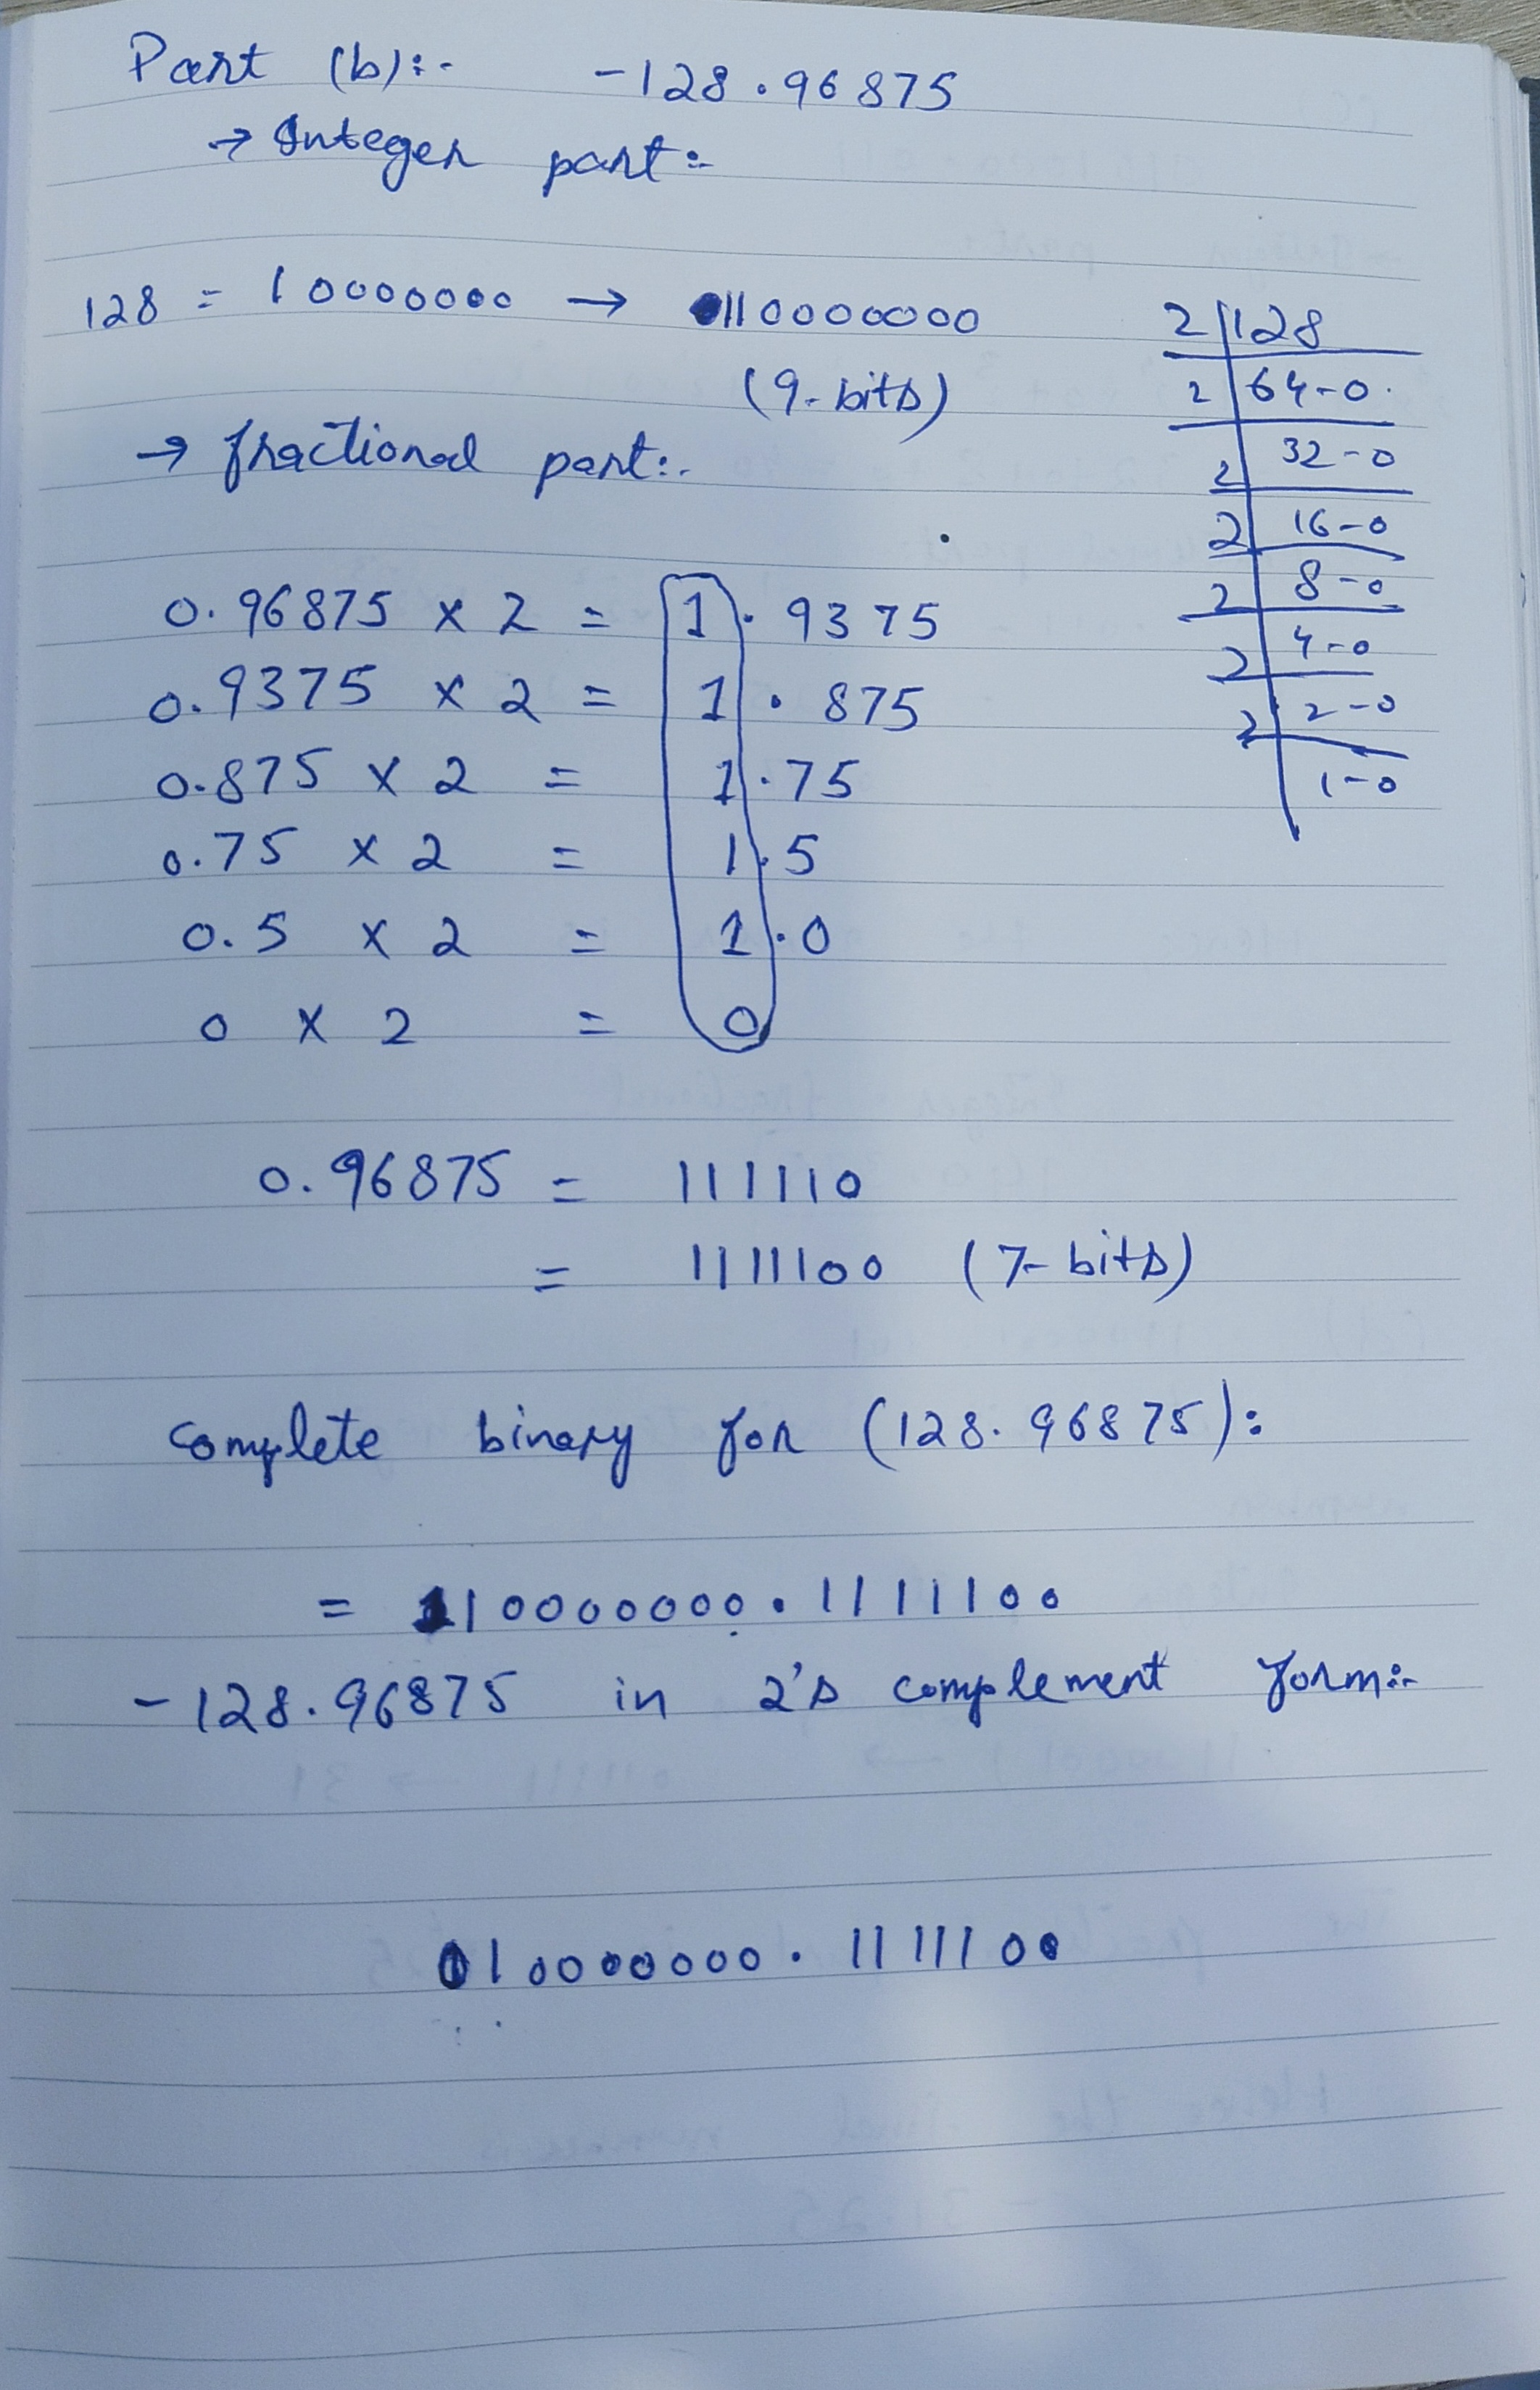 Part (b):- -128.96875
→ Integer part:-
128 = 10000000 → 110000000
(9-bits)
2 128
2 64-0
2 32-0
2 16-0
2 8-0
2 4-0
2 2-0
1-0
→ fractional part:-
0.96875 x 2 = 1.9375
0.9375 x 2 = 1.875
0.875 x 2 = 1.75
0.75 x 2 = 1.5
0.5 x 2 = 1.0
0 x 2 = 0
0.96875 = 111110
= 1111100 (7-bits)
Complete binary for (128.96875):
= 110000000.1111100
-128.96875 in 2's complement form:-
010000000.1111100